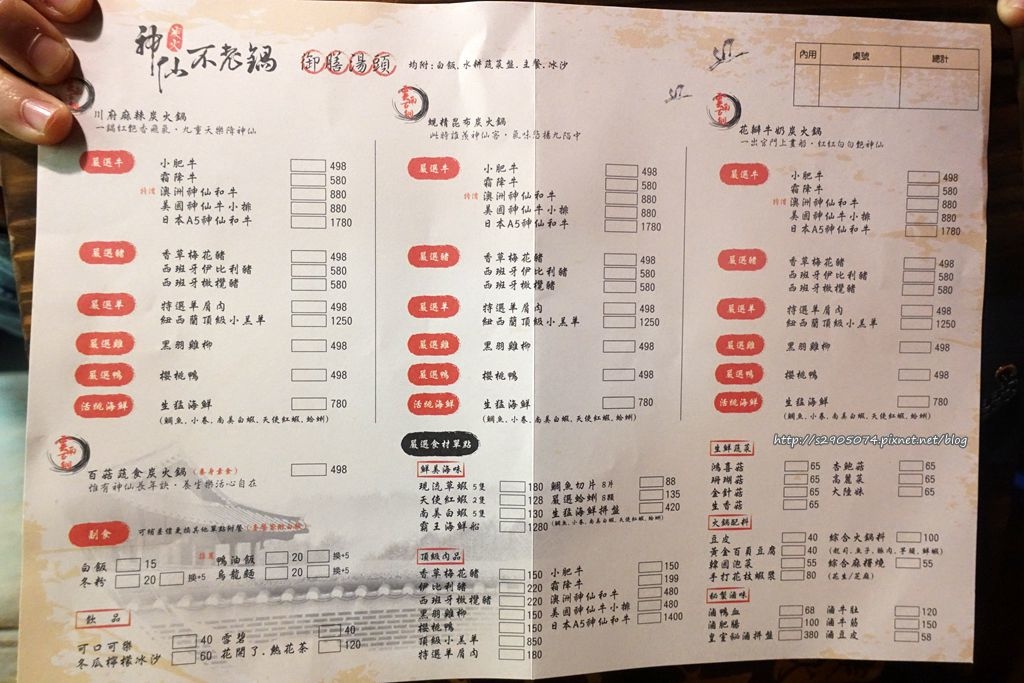 炭火
神仙不老鍋
御膳湯頭
均附:白飯.水餃蔬菜盤.主餐.冰沙
內用 桌號 總計
川府麻辣炭火鍋
一鍋紅艷香飛氣.九重天樂降神仙
嚴選牛
小肥牛 498
霜降牛 580
澳洲神仙和牛 880
美國神仙牛小排 880
日本A5神仙和牛 1780
嚴選豬
香草梅花豬 498
西班牙伊比利豬 580
西班牙橄欖豬 580
嚴選羊
特選羊肩肉 498
紐西蘭頂級小羔羊 1250
嚴選雞
黑羽雞柳 498
嚴選鴨
櫻桃鴨 498
活跳海鮮
生猛海鮮 780
(鯛魚.小卷.南美白蝦.天使紅蝦.蛤蜊)
蜆精昆布炭火鍋
嚴選牛
小肥牛 498
霜降牛 580
澳洲神仙和牛 880
美國神仙牛小排 880
日本A5神仙和牛 1780
嚴選豬
香草梅花豬 498
西班牙伊比利豬 580
西班牙橄欖豬 580
嚴選羊
特選羊肩肉 498
紐西蘭頂級小羔羊 1250
嚴選雞
黑羽雞柳 498
嚴選鴨
櫻桃鴨 498
活跳海鮮
生猛海鮮 780
(鯛魚.小卷.南美白蝦.天使紅蝦.蛤蜊)
花瓣牛奶炭火鍋
一出宮門上畫船.紅紅白白艷神仙
嚴選牛
小肥牛 498
霜降牛 580
澳洲神仙和牛 880
美國神仙牛小排 880
日本A5神仙和牛 1780
嚴選豬
香草梅花豬 498
西班牙伊比利豬 580
西班牙橄欖豬 580
嚴選羊
特選羊肩肉 498
紐西蘭頂級小羔羊 1250
嚴選雞
黑羽雞柳 498
嚴選鴨
櫻桃鴨 498
活跳海鮮
生猛海鮮 780
(鯛魚.小卷.南美白蝦.天使紅蝦.蛤蜊)
百菇蔬食炭火鍋(養身素食) 498
惟有神仙長年訣.養生樂活心自在
副食
可補差價更換其他單點附餐
推薦
白飯 15 鴨油飯 20 換+5
冬粉 20 換+5 烏龍麵 20 換+5
飲品
可口可樂 40 雪碧 40
冬瓜檸檬冰沙 60 花開了.熱花茶 120
嚴選食材單點
鮮美海味
現流草蝦 5隻 180 鯛魚切片 8片 88
天使紅蝦 2隻 128 嚴選蛤蜊 8顆 135
南美白蝦 5隻 130 生猛海鮮拼盤 420
霸王海鮮船 1280 (鯛魚.小卷.南美白蝦.天使紅蝦.蛤蜊)
頂級肉品
香草梅花豬 150 小肥牛 150
伊比利豬 220 霜降牛 199
西班牙橄欖豬 220 澳洲神仙和牛 480
黑羽雞柳 150 美國神仙牛小排 480
櫻桃鴨 150 日本A5神仙和牛 1400
頂級小羔羊 850
特選羊肩肉 180
http://s2905074.pixnet.net/blog
生鮮蔬菜
鴻喜菇 65 杏鮑菇 65
珊瑚菇 65 高麗菜 65
金針菇 65 大陸妹 65
生香菇 65
火鍋配料
豆皮 40 綜合火鍋料 100
黃金百頁豆腐 40 (起司.魚子.豬肉.芋頭.鮮蝦)
韓國泡菜 55 綜合麻糬燒 55
手打花枝蝦漿 80 (花生/芝麻)
秘製滷味
滷鴨血 68 滷牛肚 120
滷肥腸 100 滷牛筋 150
皇室秘滷拼盤 380 滷豆皮 58